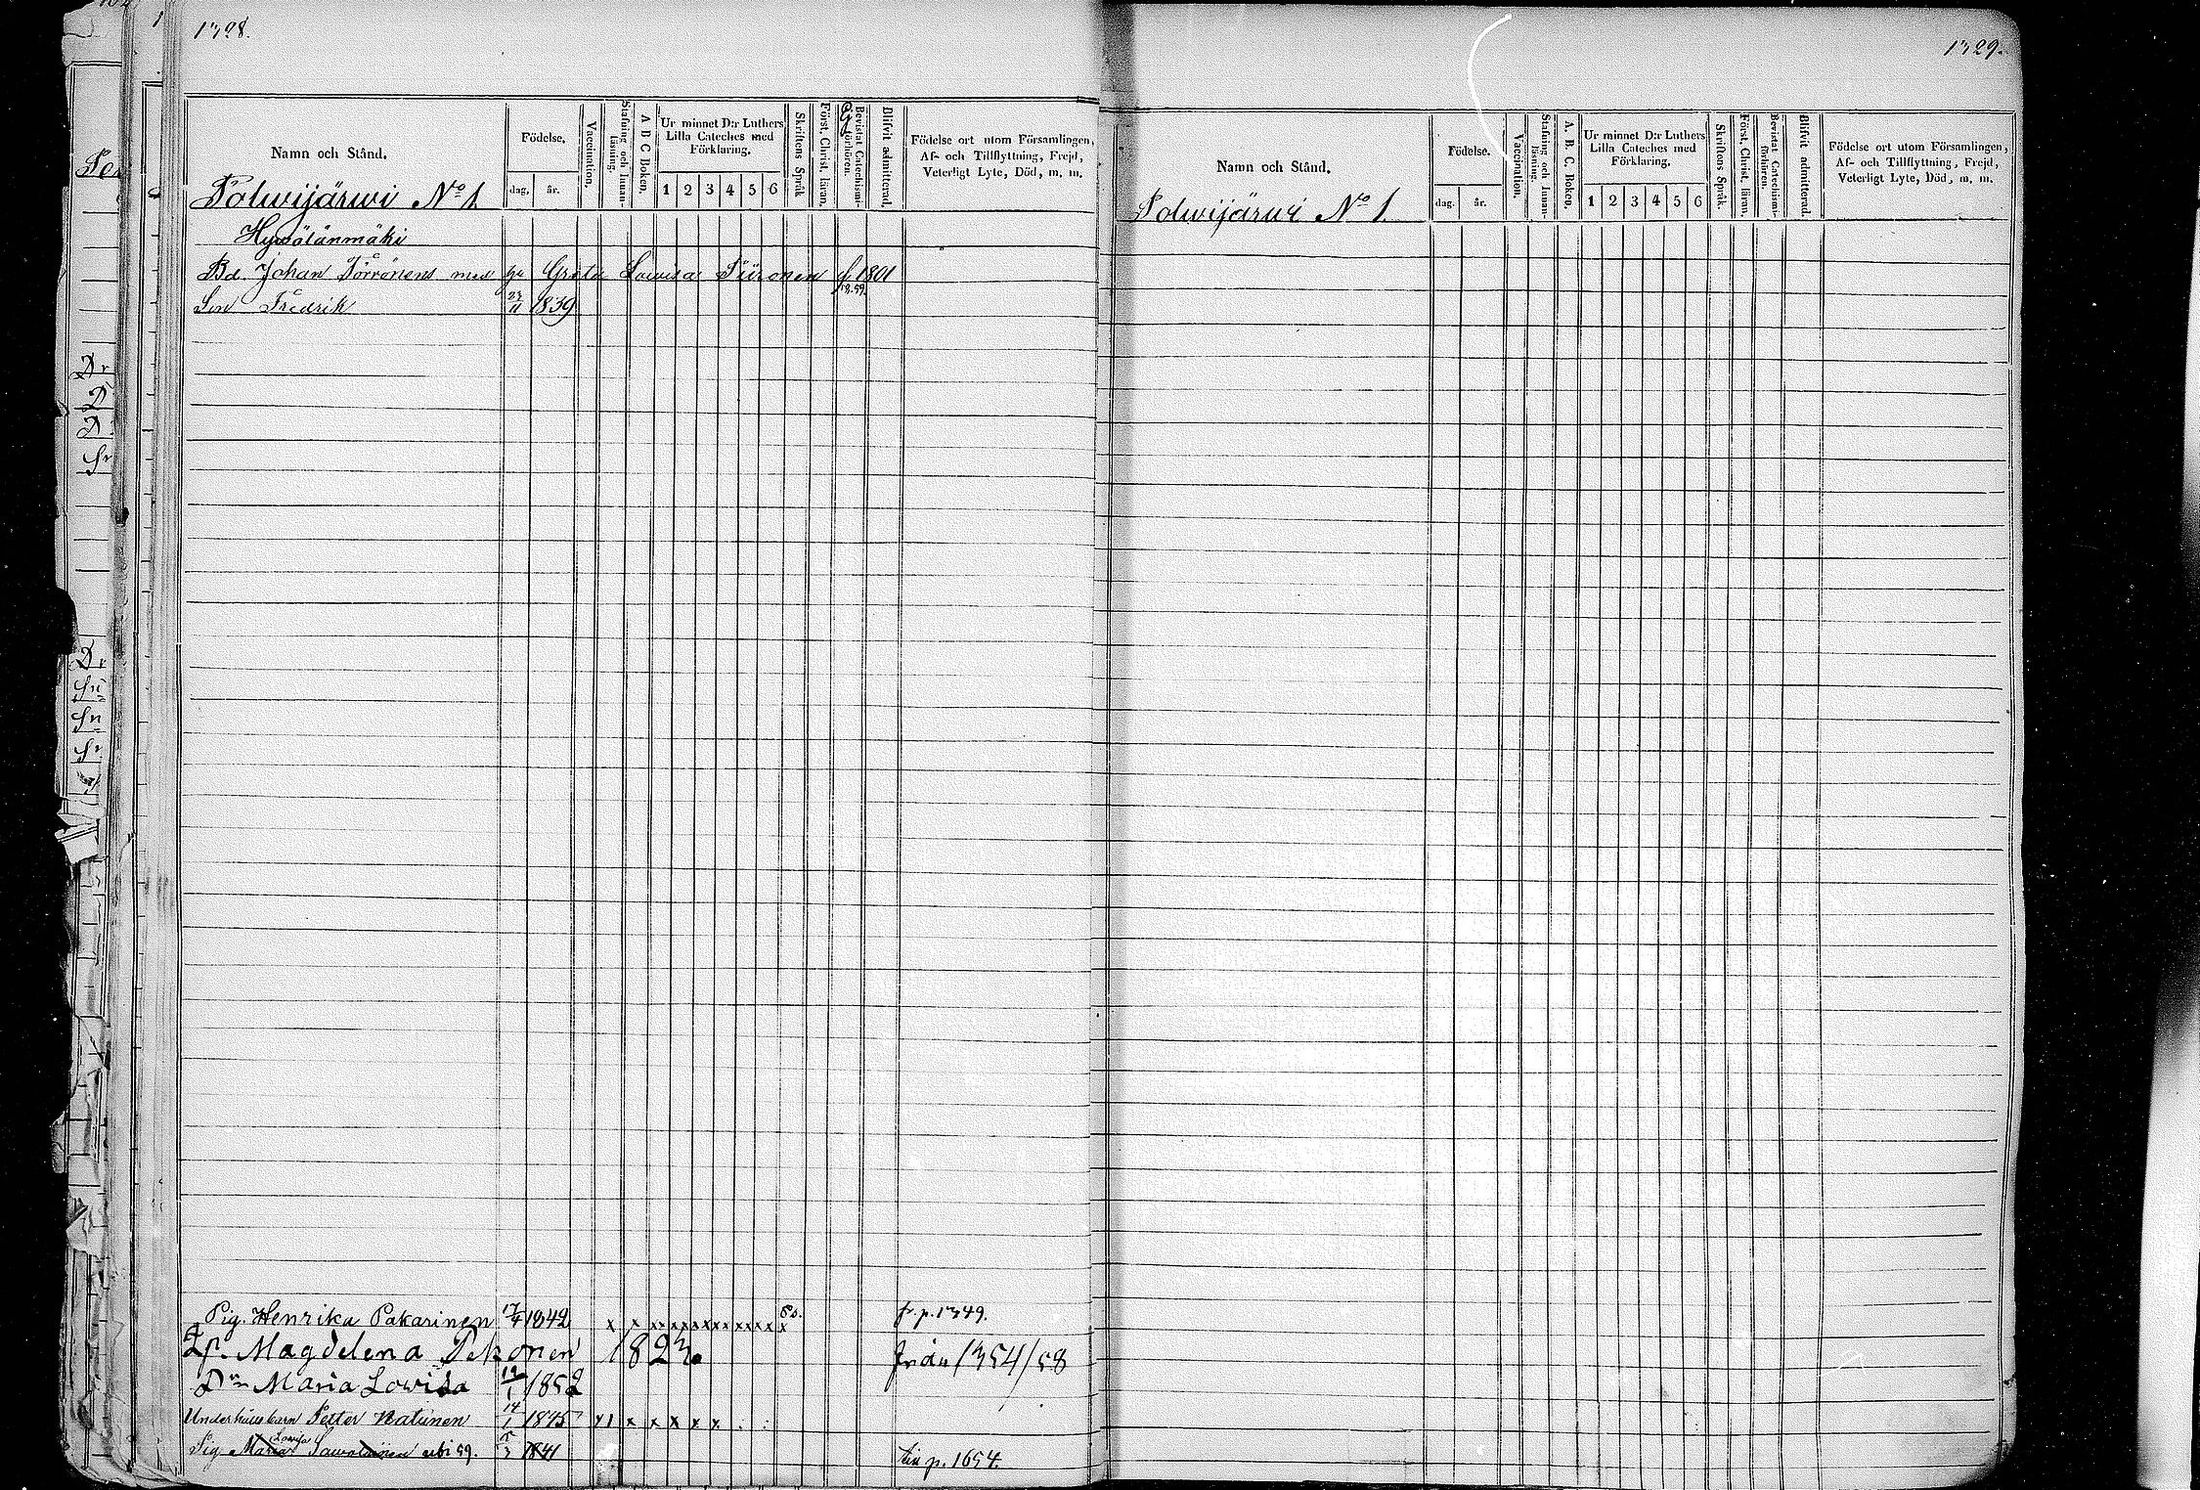 1328.
Namn och Stånd.
Födelse.
dag.
år.
Vaccination.
Stafning och Innan-läsning.
A B C Boken.
Ur minnet D:r Luthers Lilla Cateches med Förklaring.
1 2 3 4 5 6
Skriftens Språk
Först. Christ. läran.
Bevistat Catechismi-förhören.
Blifvit admitterad.
Födelse ort utom Församlingen,
Af- och Tillflyttning, Frejd,
Veterligt Lyte, Död, m. m.
Polwijärwi No 1
Hywölänmäki
Bd. Johan Törrönens med Greta Lowisa Piironen f. 1801
18.59.
Son Fredrik 27/11 1839
Pig. Henrika Pakarinen 17/4 1842 x x x x x x x x x x x x x x f. p. 1349.
Magdelena Pekonen 1823. 1354/58
Dr Maria Lowisa 19/1 1852
Underhålls barn Petter Natunen 14/1 1845 x 1 x x x x x
Pig. Maria Lowisa Sawolainen ubi 59. 5/3 1841 p. 1654.
1329.
Namn och Stånd.
Födelse.
dag.
år.
Vaccination.
Stafning och Innan-läsning.
A. B. C. Boken.
Ur minnet D:r Luthers Lilla Cateches med Förklaring.
1 2 3 4 5 6
Skriftens Språk.
Först. Christ. läran.
Bevistat Catechismi-förhören.
Blifvit admitterad.
Födelse ort utom Församlingen,
Af- och Tillflyttning, Frejd,
Veterligt Lyte, Död, m. m.
Polwijärwi No 1.